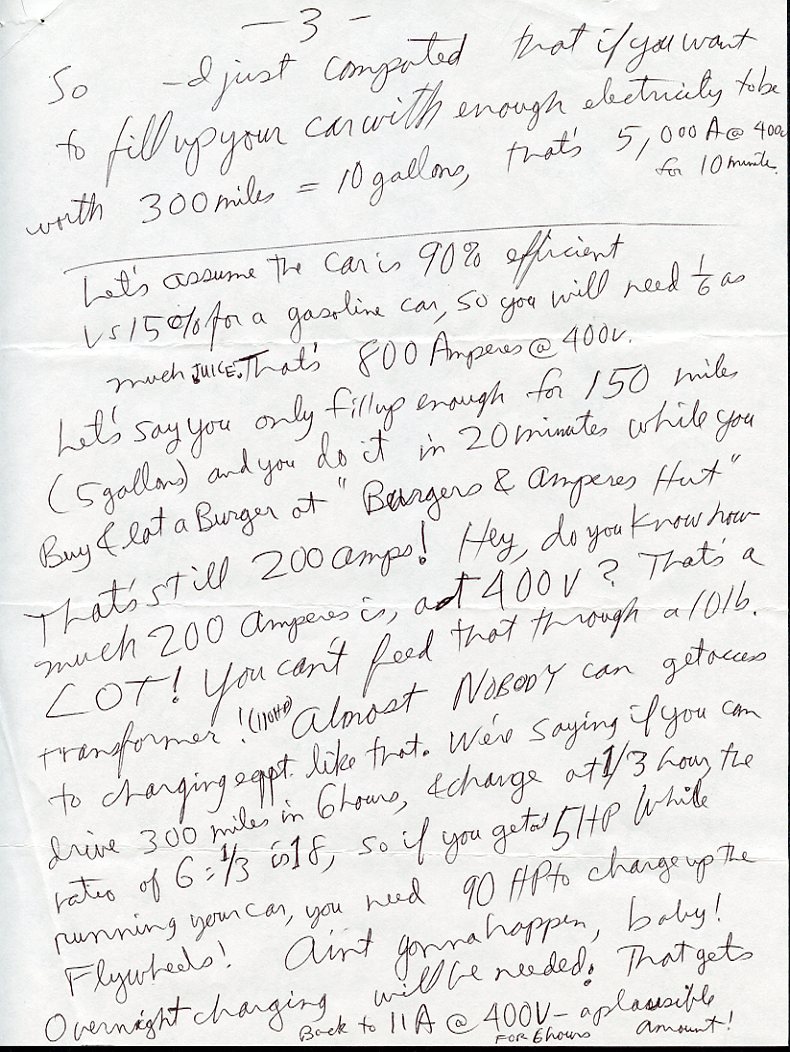 — 3 —
So — I just computed that if you want
to fill up your car with enough electricity to be
worth 300 miles = 10 gallons, that's 5,000 A @ 400v
for 10 minute.
Let's assume the car is 90% efficient
vs 15% for a gasoline car, so you will need 1/6 as
much JUICE. That's 800 Amperes @ 400v.
Let's say you only fill up enough for 150 miles
(5 gallons) and you do it in 20 minutes while you
Buy & Eat a Burger at "Burgers & Amperes Hut"
That's still 200 amps! Hey, do you know how
much 200 Amperes is, at 400V? That's a
LOT! You can't feed that through a 10 lb.
transformer! (110HP) Almost NOBODY can get access
to charging eqpt. like that. We're saying if you can
drive 300 miles in 6 hours, & charge at 1/3 hour, the
ratio of 6 : 1/3 is 18, so if you get out 5 HP while
running your car, you need 90 HP to charge up the
Flywheels! Aint gonna happen, baby!
Overnight charging will be needed. That gets
Back to 11A @ 400V — a plausible amount!
FOR 6 hours